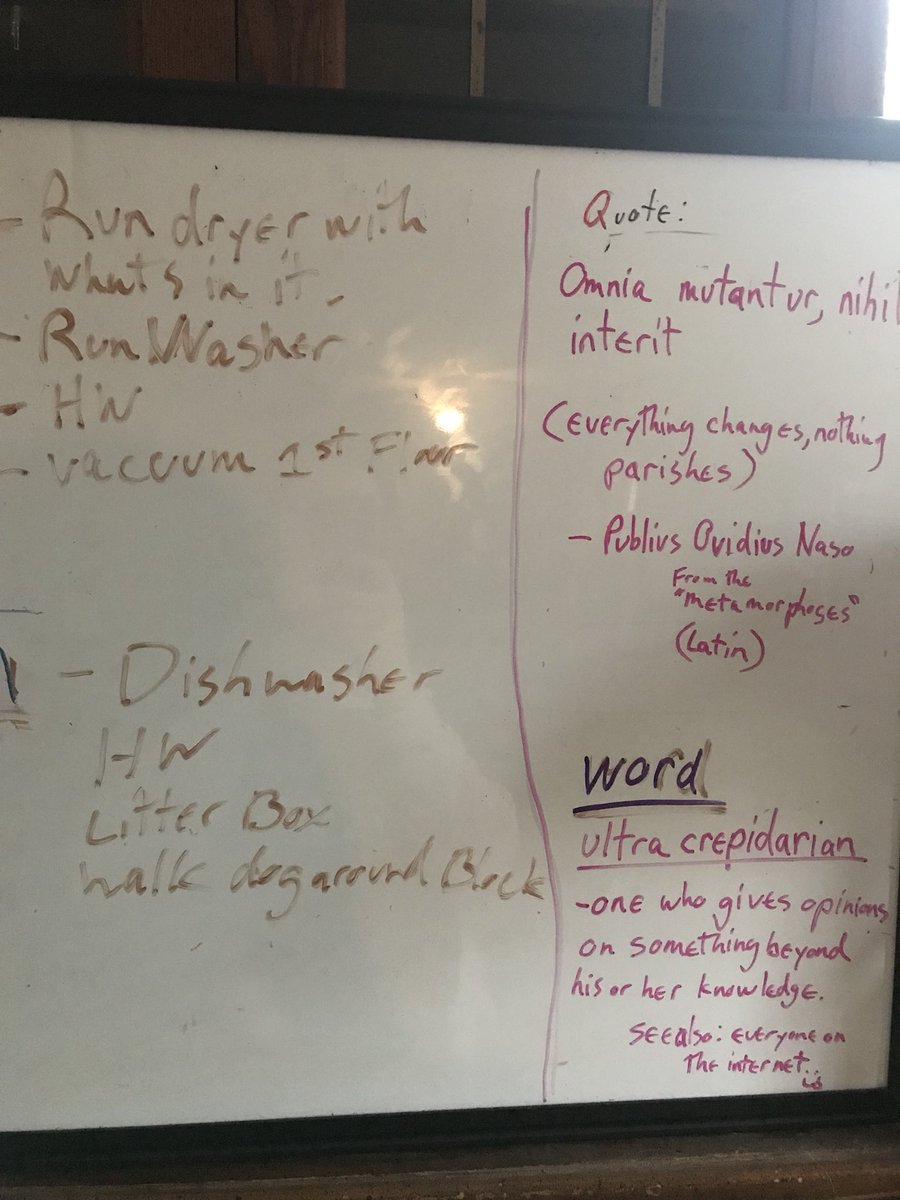 - Run dryer with
what's in it.
- Run Washer
- HW
- vacuum 1st Floor
- Dishwasher
HW
Litter Box
walk dog around Block
Quote:
Omnia mutantur, nihil
interit
(everything changes, nothing
parishes)
- Publius Ovidius Naso
From the
"metamorphoses"
(Latin)
word
ultra crepidarian
-one who gives opinions
on something beyond
his or her knowledge.
see also: everyone on
the internet..